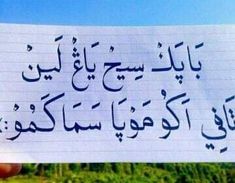 بَاپَكْ سِيحْ يَاڠْ لَيِنْ
تَافِي اَكُو مَوْپَا سَمَا كَمُو:*